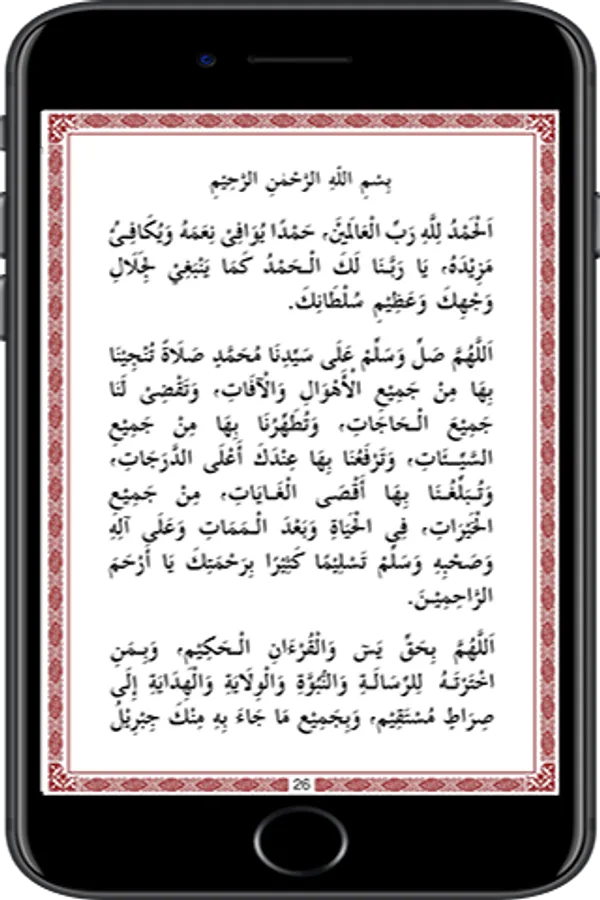 بِسْمِ اللّٰهِ الرَّحْمٰنِ الرَّحِيْمِ
اَلْحَمْدُ لِلّٰهِ رَبِّ الْعَالَمِيْنَ، حَمْدًا يُوَافِىْ نِعَمَهُ وَيُكَافِىُ
مَزِيْدَهُ، يَا رَبَّنَا لَكَ الْـحَمْدُ كَمَا يَنْبَغِيْ لِجَلَالِ
وَجْهِكَ وَعَظِيْمِ سُلْطَانِكَ.
اَللّٰهُمَّ صَلِّ وَسَلِّمْ عَلَى سَيِّدِنَا مُحَمَّدٍ صَلَاةً تُنْجِيْنَا
بِهَا مِنْ جَمِيْعِ الْأَهْوَالِ وَالْآفَاتِ، وَتَقْضِىْ لَنَا
جَمِيْعَ الْـحَاجَاتِ، وَتُطَهِّرُنَا بِهَا مِنْ جَمِيْعِ
السَّيِّـئَاتِ، وَتَرْفَعُنَا بِهَا عِنْدَكَ أَعْلَى الدَّرَجَاتِ،
وَتُـبَلِّغُـنَا بِهَا أَقْصَى الْغَـايَاتِ، مِنْ جَمِيْعِ
الْخَيْرَاتِ، فِي الْحَيَاةِ وَبَعْدَ الْـمَمَاتِ وَعَلَى آلِهِ
وَصَحْبِهِ وَسَلِّمْ تَسْلِيْمًا كَثِيْرًا بِرَحْمَتِكَ يَا أَرْحَمَ
الرَّاحِمِيْـنَ.
اَللّٰهُمَّ بِحَقِّ يٰسٓ وَالْقُرْءَانِ الْـحَكِيْمِ، وَبِـمَنِ
اخْتَرْتَـهُ لِلرِّسَالَـةِ وَالنُّبُوَّةِ وَالْوِلَايَةِ وَالْهِدَايَةِ إِلَى
صِرَاطٍ مُسْتَقِيْمٍ، وَبِجَمِيْعِ مَا جَاءَ بِهِ مِنْكَ جِبْرِيْلُ
26